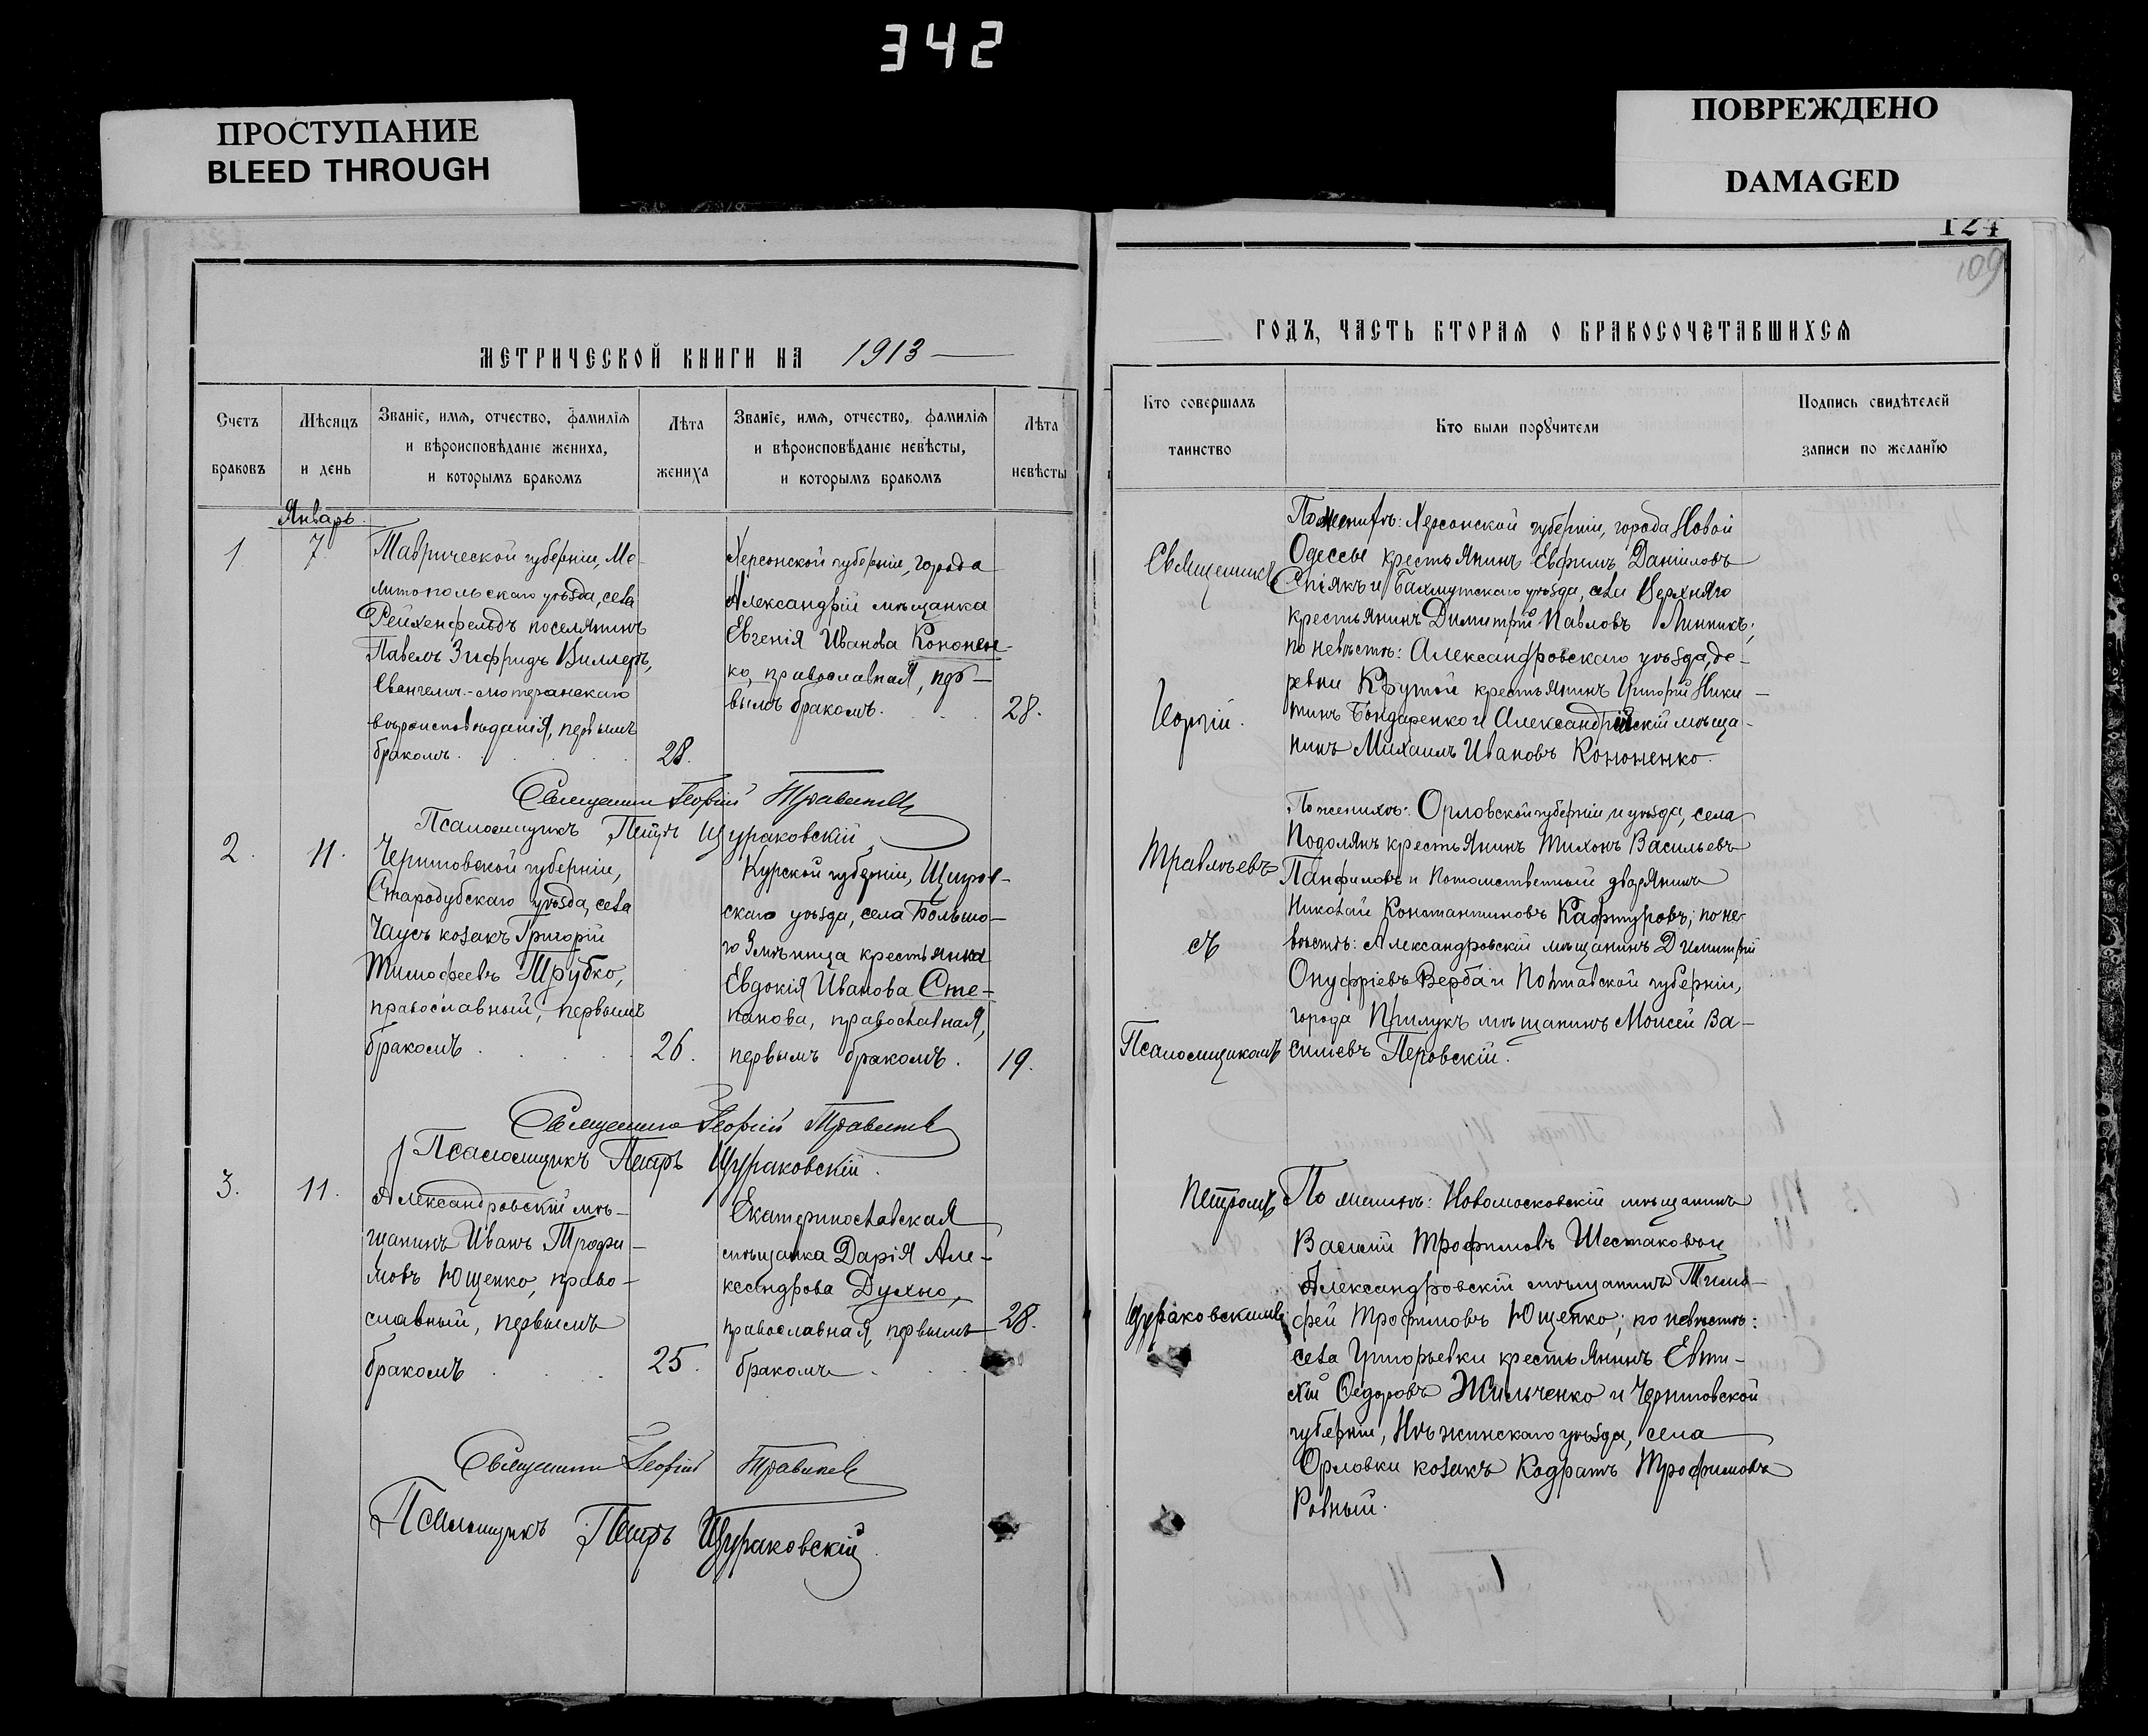 342
ПРОСТУПАНИЕ
BLEED THROUGH
ПОВРЕЖДЕНО
DAMAGED
124
109
МЕТРИЧЕСКОЙ КНИГИ НА 1913
Счетъ
браковъ
Мѣсяцъ
и день
Званіе, имя, отчество, фамилія
и вѣроисповѣданіе жениха,
и которымъ бракомъ
Лѣта
жениха
Званіе, имя, отчество, фамилія
и вѣроисповѣданіе невѣсты,
и которымъ бракомъ
Лѣта
невѣсты
Январь
1
7.
Таврической губерніи, Ме-
литопольскаго уѣзда, села
Рейхенфельдъ поселянинъ
Павелъ Зигфридъ Виллеръ,
Евангелич.-лютеранскаго
вѣроисповѣданія, первымъ
бракомъ.
28.
Херсонской губерніи, города
Александріи мѣщанка
Евгенія Иванова Кононен-
ко, православная, пер-
вымъ бракомъ.
28.
Священникъ Георгій Травлѣевъ
Псаломщикъ Петръ Щураковскій
2.
11.
Черниговской губерніи,
Стародубскаго уѣзда, села
Чаусъ козакъ Григорій
Тимофеевъ Трубко,
православный, первымъ
бракомъ
26.
Курской губерніи, Щигров-
скаго уѣзда, села Большо-
го Змѣинца крестьянка
Евдокія Иванова Сте-
панова, православная,
первымъ бракомъ.
19.
Священникъ Георгій Травлѣевъ
Псаломщикъ Петръ Щураковскій.
3.
11.
Александровскій мѣ-
щанинъ Иванъ Трофи-
мовъ Ющенко, право-
славный, первымъ
бракомъ
25.
Екатеринославская
мѣщанка Дарія Але-
ксандрова Духно,
православная, первымъ
бракомъ.
28.
Священникъ Георгій Травлѣевъ
Псаломщикъ Петръ Щураковскій
ГОДЪ, ЧАСТЬ ВТОРАЯ О БРАКОСОЧЕТАВШИХСЯ
Кто совершалъ
таинство
Кто были поручители
Подпись свидѣтелей
записи по желанію
Священникъ
Георгій.
Травлѣевъ
съ
Псаломщикомъ
Петромъ
Щураковскимъ
По женихѣ: Херсонской губерніи, города Новой
Одессы крестьянинъ Евфимъ Даніиловъ
Спіякъ и Бахмутскаго уѣзда, села Верхняго
крестьянинъ Димитрій Павловъ Линникъ;
по невѣстѣ: Александровскаго уѣзда, де-
ревни Крутой крестьянинъ Григорій Ники-
тинъ Бондаренко и Александрійскій мѣща-
нинъ Михаилъ Ивановъ Кононенко.
По женихѣ: Орловской губерніи и уѣзда, села
Подолянъ крестьянинъ Тихонъ Васильевъ
Панфиловъ и потомственный дворянинъ
Николай Константиновъ Кафтуровъ; по не-
вѣстѣ: Александровскій мѣщанинъ Димитрій
Онуфріевъ Верба и Полтавской губерніи,
города Прилукъ мѣщанинъ Моисей Ва-
сильевъ Перовскій.
По женихѣ: Новомосковскій мѣщанинъ
Василій Трофимовъ Шестаковъ и
Александровскій мѣщанинъ Тимо-
фей Трофимовъ Ющенко; по невѣстѣ:
села Григорьевки крестьянинъ Евти-
хій Федоровъ Жильченко и Черниговской
губерніи, Нѣжинскаго уѣзда, села
Орловки козакъ Кодратъ Трофимовъ
Ровный.